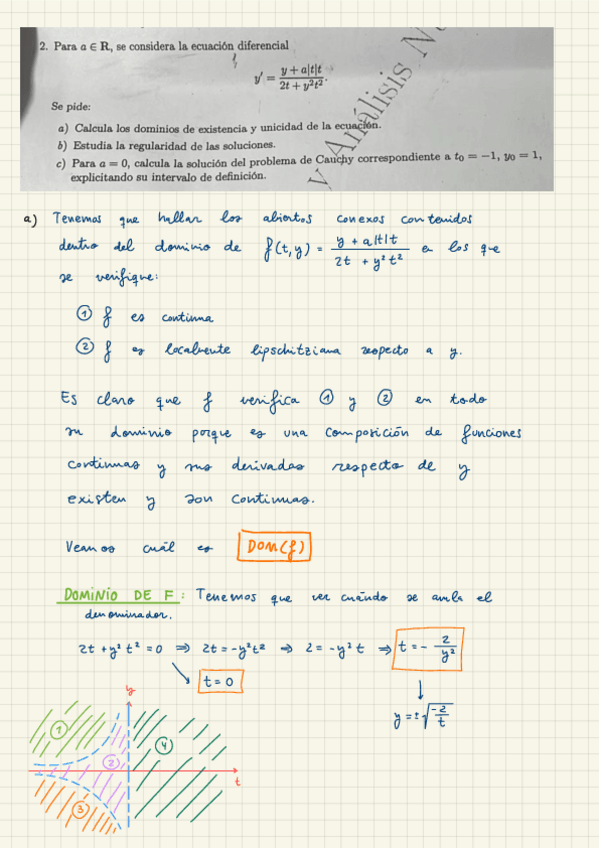 2. Para a ∈ R, se considera la ecuación diferencial
y' = (y + a|t|t)/(2t + y²t²).
Se pide:
a) Calcula los dominios de existencia y unicidad de la ecuación.
b) Estudia la regularidad de las soluciones.
c) Para a = 0, calcula la solución del problema de Cauchy correspondiente a t₀ = −1, y₀ = 1,
explicitando su intervalo de definición.
y Análisis
a) Tenemos que hallar los abiertos conexos contenidos
dentro del dominio de f(t,y) = (y + a|t|t)/(2t + y²t²) en los que
se verifique:
① f es continua
② f es localmente lipschitziana respecto a y.
Es claro que f verifica ① y ② en todo
su dominio porque es una composición de funciones
continuas y sus derivadas respecto de y
existen y son continuas.
Veamos cuál es DOM(f)
DOMINIO DE F: Tenemos que ver cuándo se anula el
denominador.
2t + y² t² = 0 ⇒ 2t = -y²t² ⇒ 2 = -y² t ⇒ t = - 2/y²
t = 0
y = ±√(-2/t)
y
①
②
③
④
t